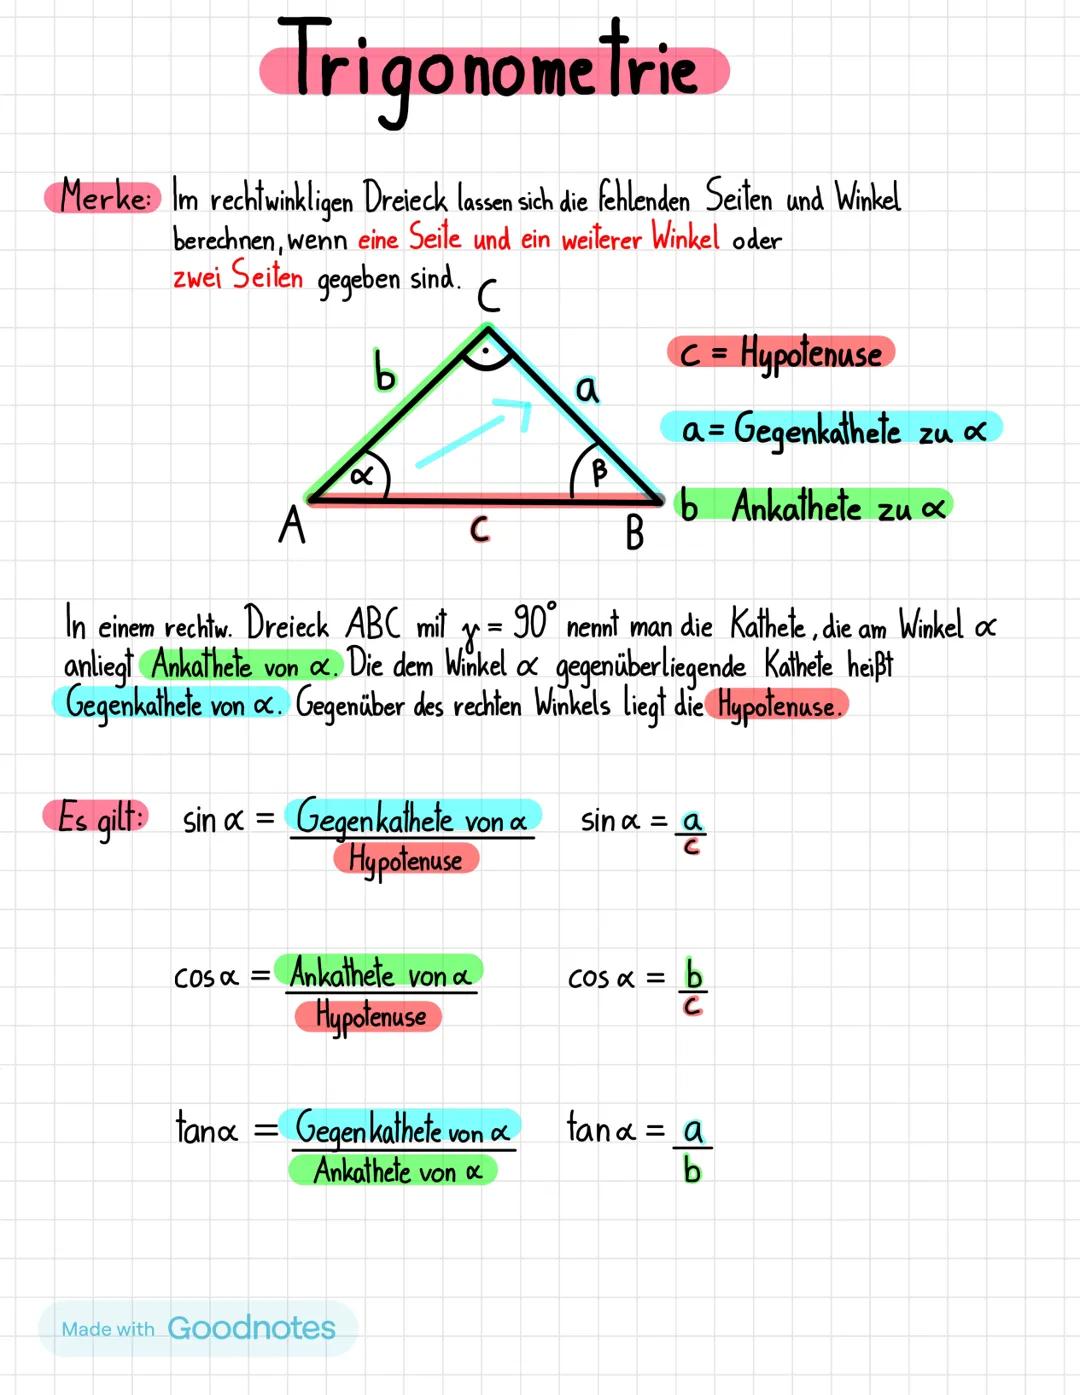 Trigonometrie
Merke: Im rechtwinkligen Dreieck lassen sich die fehlenden Seiten und Winkel
berechnen, wenn eine Seite und ein weiterer Winkel oder
zwei Seiten gegeben sind.
C
b
a
α
β
A
c
B
c = Hypotenuse
a = Gegenkathete zu α
b Ankathete zu α
In einem rechtw. Dreieck ABC mit γ = 90° nennt man die Kathete, die am Winkel α
anliegt Ankathete von α. Die dem Winkel α gegenüberliegende Kathete heißt
Gegenkathete von α. Gegenüber des rechten Winkels liegt die Hypotenuse.
Es gilt: sin α = Gegenkathete von α / Hypotenuse sin α = a / c
cos α = Ankathete von α / Hypotenuse cos α = b / c
tan α = Gegenkathete von α / Ankathete von α tan α = a / b
Made with Goodnotes